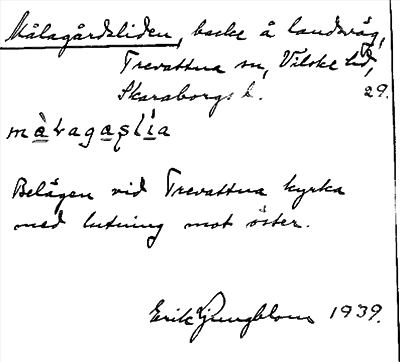 Målagårdsliden, backe å landsväg,
Trevattna sn, Vilske hd,
Skaraborgs l. 29.
Belägen vid Trevattna kyrka
med lutning mot öster.
Erik Ljungblom 1939.